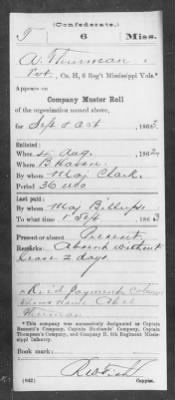 (Confederate.)
T 6 Miss.
A. Thurman
Pvt., Co. H, 6 Reg't Mississippi Vols.*
Appears on
Company Muster Roll
of the organization named above,
for Sept & Oct, 1863.
Enlisted:
When Aug., 1862
Where
By whom Maj. Clark
Period 36 mos
Last paid:
By whom Maj Billups
To what time 1 Sept, 1863
Present or absent Present
Remarks: Absent without
leave 2 days
Payment column
name Abel
Thurman
* This company was successively designated as Captain
Company, Captain Company, Captain
Thompson's Company, and Company H, 6th Regiment Mississippi
Infantry.
Book mark:
(642) Copyist.